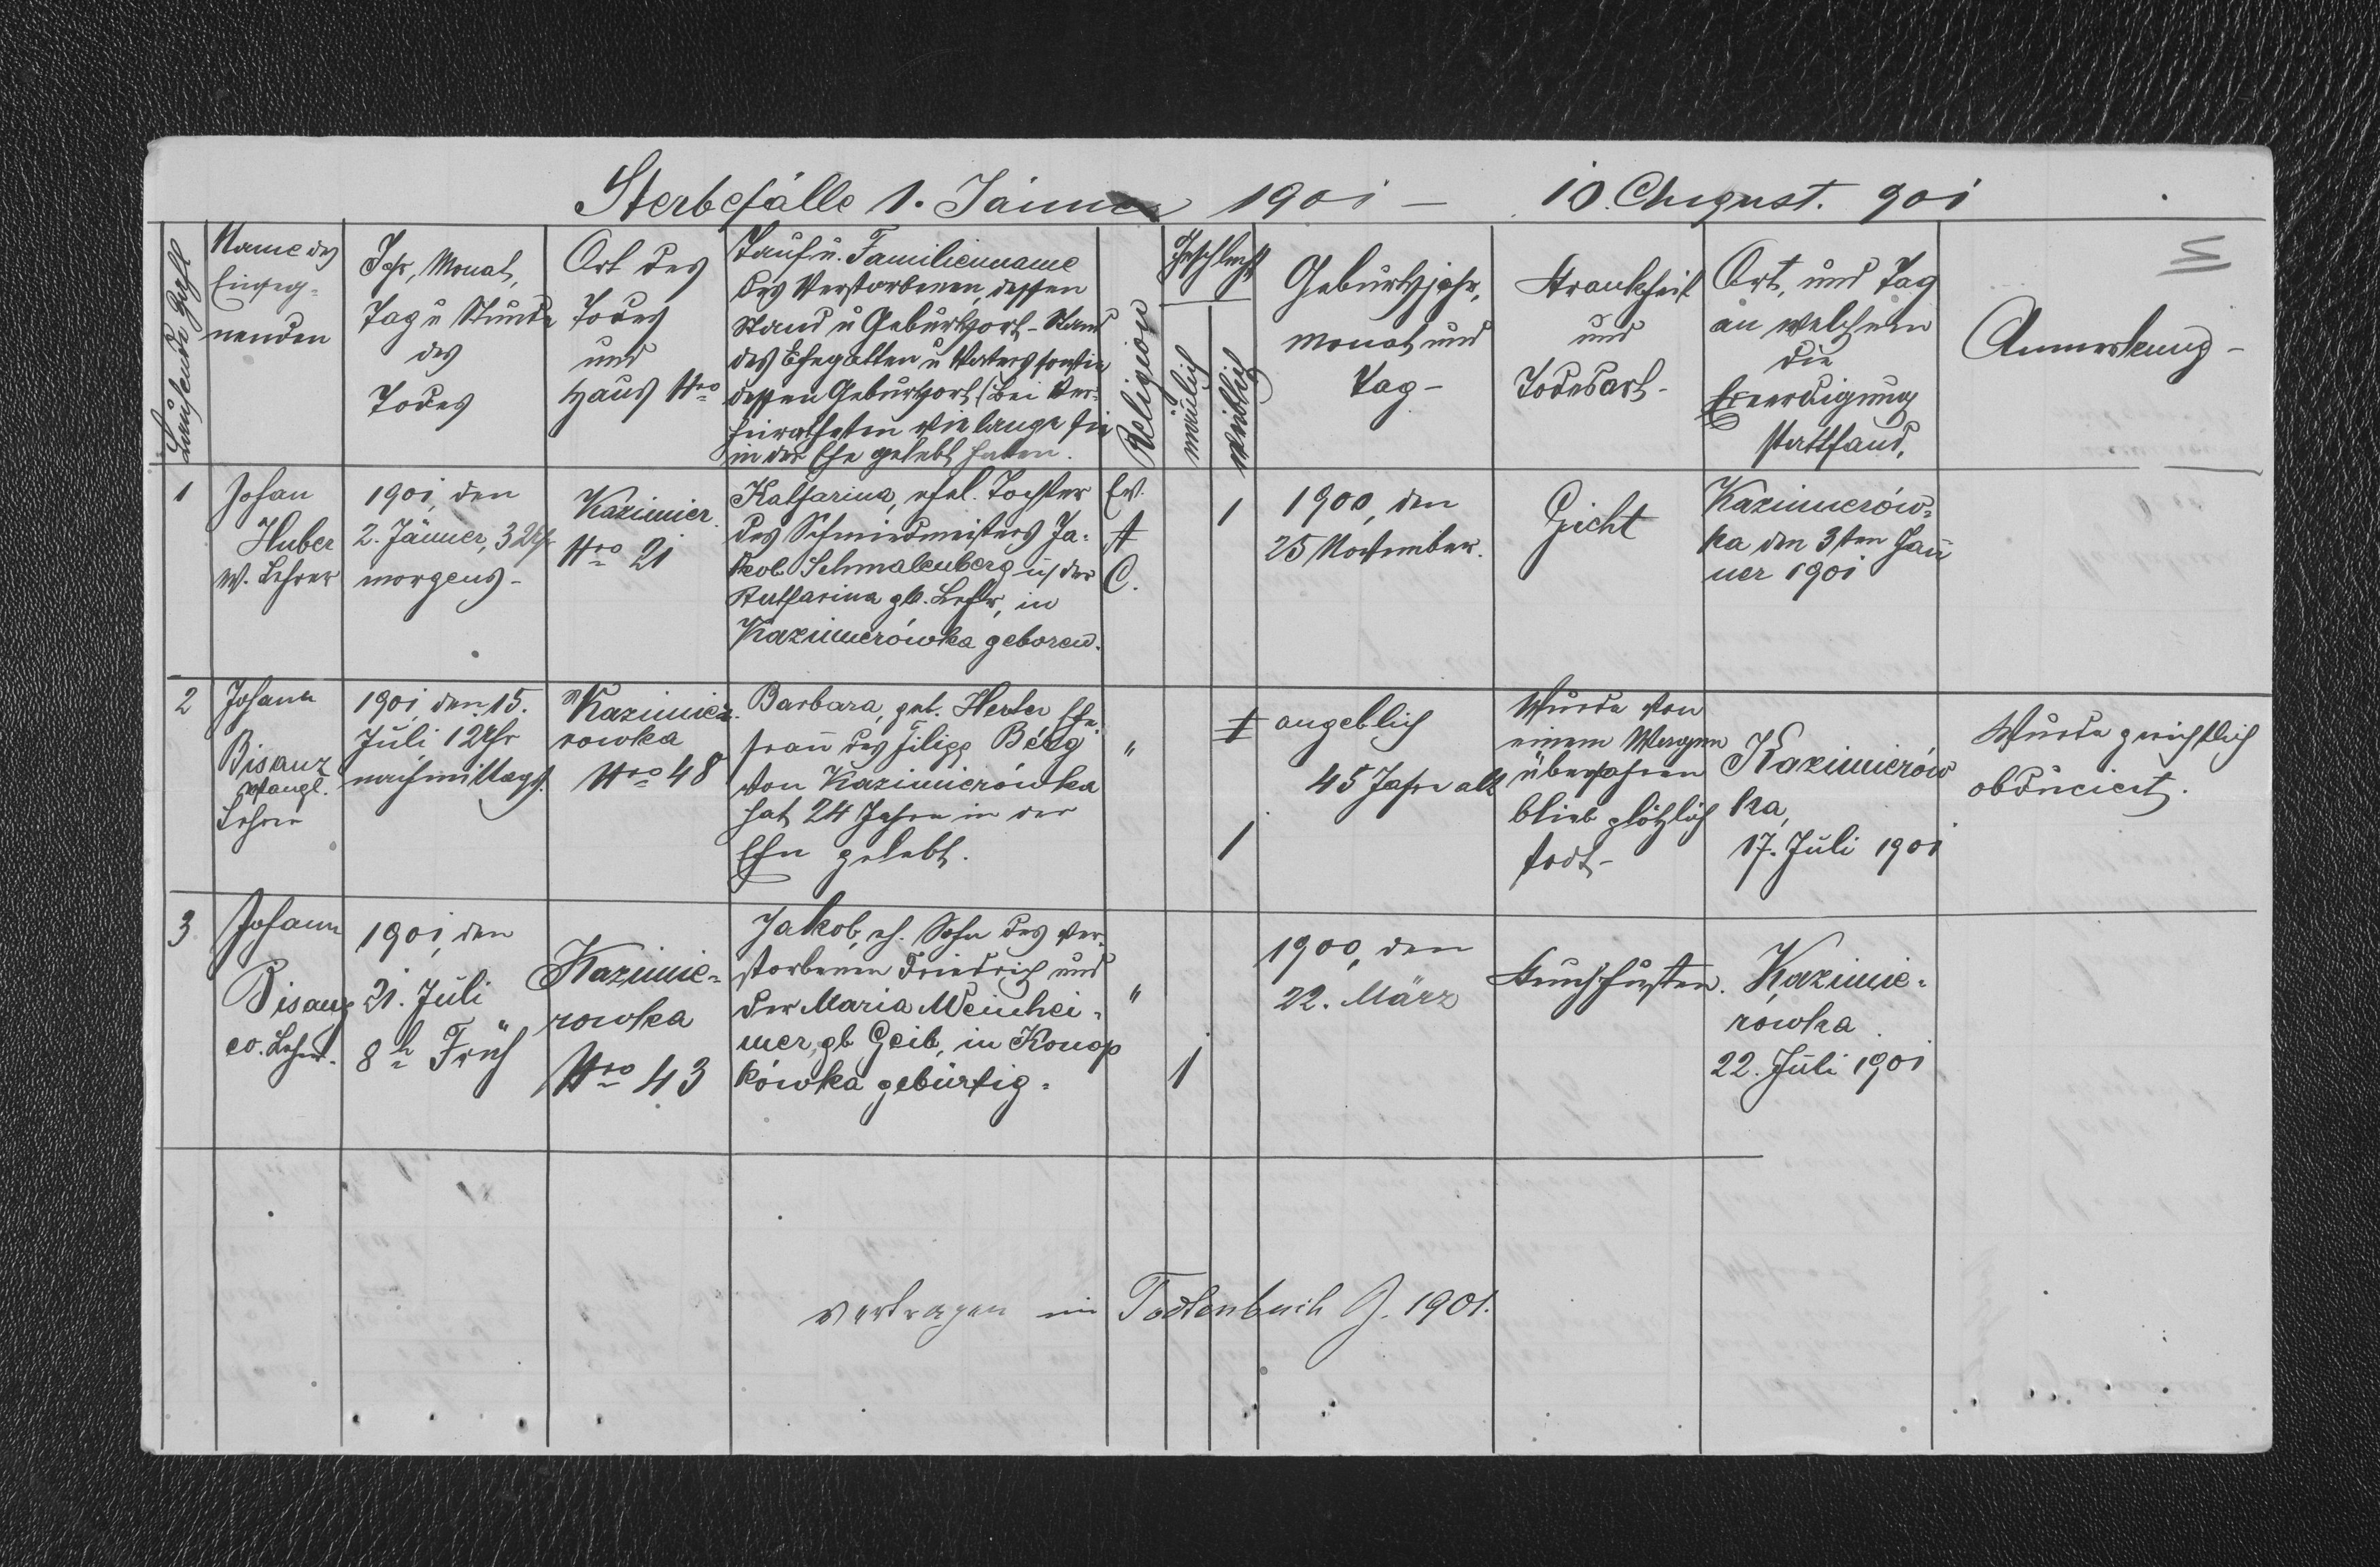 Sterbefälle 1. Jänner 1901 – 10. August. 901
Laufende Zahl
Name des
Einseg-
nenden
Jahr, Monat,
Tag u Stunde
des
Todes
Ort des
Todes
und
Haus Nro
Tauf u. Familienname
des Verstorbenen, dessen
Stand u Geburtsort - Stand
des Ehegatten u Vaters sowie
dessen Geburtsort (bei Ver-
heiratheten wie lange sie
in der Ehe gelebt haben.
Religion
Geschlecht
mänlich
weiblich
Geburtsjahr,
Monat und
Tag -
Krankheit
und
Todesart -
Ort, und Tag
an welchem
die
Beerdigung
stattfand,
Anmerkung -
1
Johan
Huber
w. Lehrer
1901, den
2. Jänner, 3 Uhr
morgens -
Kazimier.
Nro 21
Katharina, ehel. Tochter
des Schmiedmeisters Ja-
kob Schmalenberg u der
Katharina gb. , in
Kazimierówka geboren.
Ev.
A
C.
1
1900, den
25 November.
Gicht
Kazimierów-
ka den 3ten Jän
ner 1901
2
Johann
Bisanz
evangl.
Lehrer
1901, den 15.
Juli 1 Uhr
nachmittags.
Kazimier.
rowka
Nro 48
Barbara, geb. Herter Ehe-
frau des Filipp Berg
von Kazimierówka
hat 24 Jahre in der
Ehe gelebt.
"
1
angeblich
45 Jahre alt
Wurde von
einem Wagen
überfahren
blieb plötzlich
todt -
Kazimierów
ka,
17. Juli 1901
Wurde gerichtlich
obduciert.
3
Johann
Bisanz
ev. Lehrer.
1901, den
21. Juli
8h Früh
Kazimie-
rowka
Nro 43
Jakob, eh. Sohn des ver-
storbenen Friedrich und
der Maria Weinhei-
mer, gb Geib, in Konop
kówka gebürtig.
"
1
1900, den
22. März
Keuchhusten.
Kazimie-
rowka.
22. Juli 1901
vertragen im Todtenbuch J. 1901.